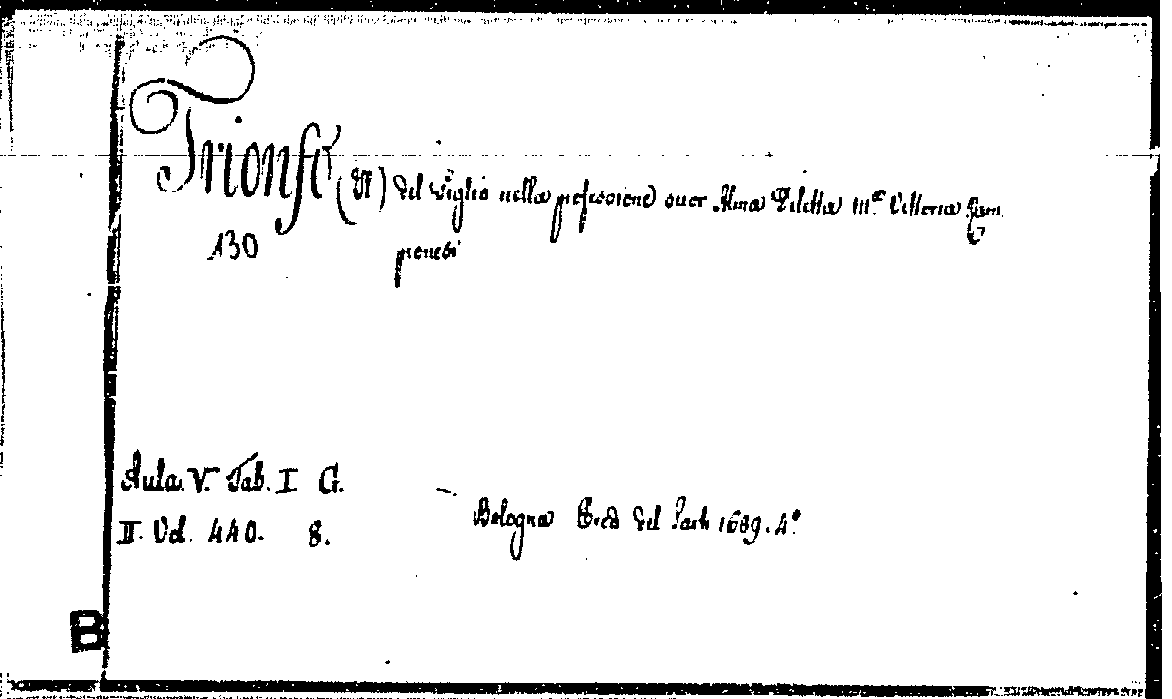 Trionfo (Il) del Giglio nella professione suor Alma Diletta M.ª Vittoria Cam
130 penesi
Aula. V. Tab. I G.
II. Vol. 440. 8.
Bologna Ered del Sarti 1689. 4º
B